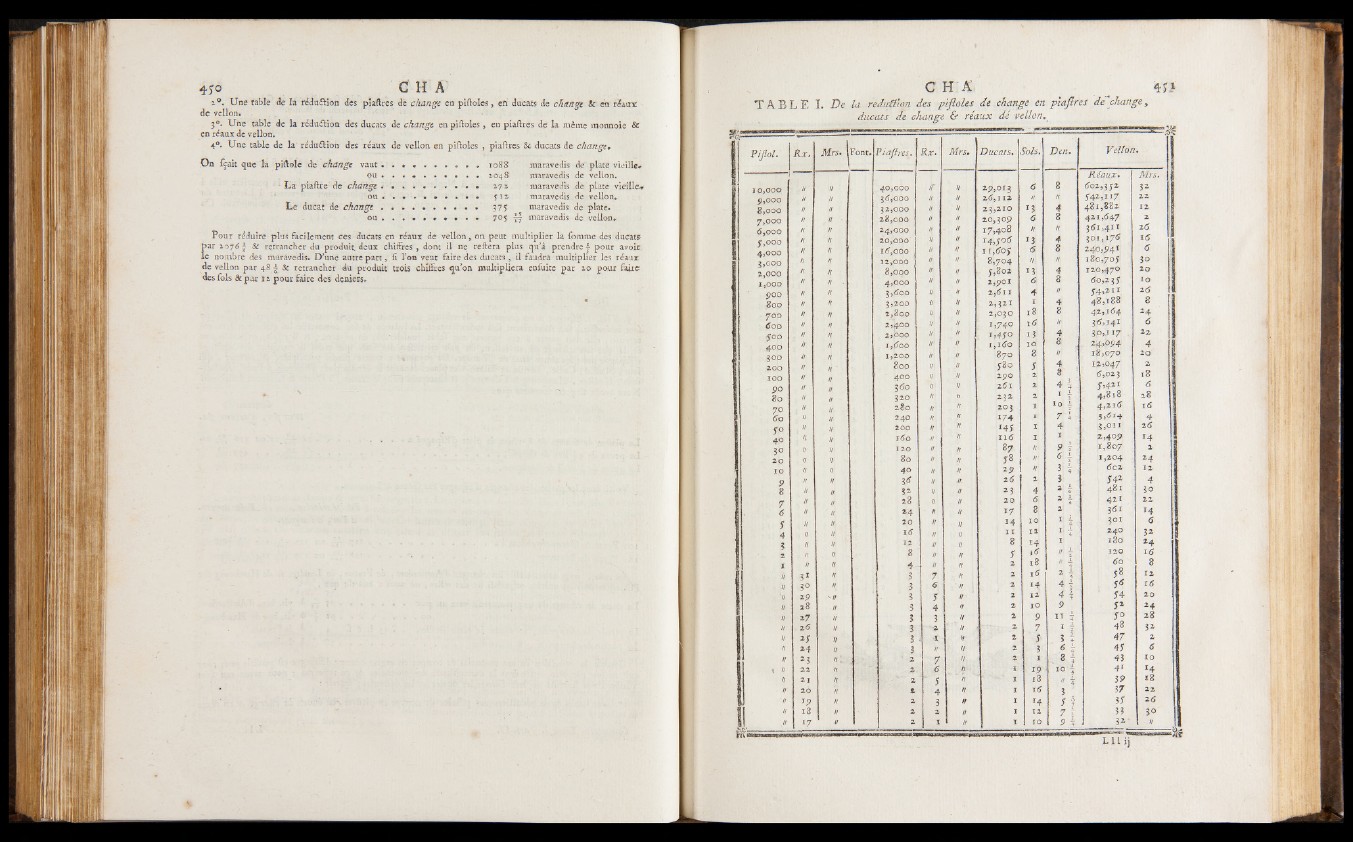 450 CHA
2°. Une table de la réduction des piastres de change en pistoles, en ducats de change & en réaux
de vellon.
3°. Une table de la réduction des ducats de change en pistoles, en piastres de la même monnoie &
en réaux de vellon.
4°. Une table de la réduction des réaux de vellon en pistoles, piastres & ducats de change.
On sçait que la pistole de change vaut . . . . . . . . . . 1088 maravedis de plate vieille.
ou . . . . . . . . . . 2048 maravedis de vellon.
La piastre de change . . . . . . . . . . 272 maravedis de plate vieille.
ou . . . . . . . . . . 512 maravedis de vellon.
Le ducat de change . . . . . . . . . . 375 maravedis de plate.
ou . . . . . . . . . . 705 maravedis de vellon.
Pour réduire plus facilement ces ducats en réaux de vellon, on peut multiplier la somme des ducats
par 2076 & retrancher du produit deux chiffres, dont il ne restera plus qu'à prendre pour avoir
le nombre des maravedis. D'une autre part, si l'on veut faire des ducats, il faudra multiplier les réaux
de vellon par 48 & retrancher du produit trois chiffres qu'on multipliera ensuite par 20 pour faire
des sols & par 12 pour faire des deniers.
CHA 451
TABLE I. De la reduction des pistoles de change en piastres de change,
ducats de change & réaux de vellon.
Pistol. Rx. Mrs. Font. Piastres. Rx. Mrs. Ducats. Sols. Den. Vellon.
Réaux. Mrs.
10,000 // // 40,000 // // 29,013 6 8 602,352 32
9,000 // // 36,000 // // 26,112 // // 542,117 22
8,000 // // 32,000 // // 23,210 13 4 481,882 12
7,000 // // 28,000 // // 20,309 6 8 421,647 2
6,000 // // 24,000 // // 17,408 // // 361,411 26
5,000 // // 20,000 // // 14,506 13 4 301,176 16
4,000 // // 16,000 // // 11,605 6 8 240,941 6
3,000 // // 12,000 // // 8,704 // // 180,705 30
2,000 // // 8,000 // // 5,802 13 4 120,470 20
1,000 // // 4,000 // // 2,901 6 8 60,235 10
900 // // 3,600 // // 2,611 4 // 54,211 26
800 // // 3,200 // // 2,321 1 4 48,188 8
700 // // 2,800 // // 2,030 18 8 42,164 24
600 // // 2,400 // // 1,740 16 // 36,141 6
500 // // 2,000 // // 1,450 13 4 30,117 22
400 // // 1,600 // // 1,160 10 8 24,094 4
300 // // 1,200 // // 870 8 // 18,070 20
200 // // 800 // // 580 5 4 12,047 2
100 // // 400 // // 290 2 8 6,023 18
90 // // 360 // // 261 2 4 5,421 6
80 // // 320 // // 232 2 1 4,818 28
70 // // 280 // // 203 1 10 4,216 16
60 // // 240 // // 174 1 7 3,614 4
50 // // 200 // // 145 1 4 3,011 26
40 // // 160 // // 116 1 1 2,409 14
30 // // 120 // // 87 // 9 1,807 2
20 // // 80 // // 58 // 6 1,204 24
10 // // 40 // // 29 // 3 602 12
9 // // 36 // // 26 2 3 542 4
8 // // 32 // // 23 4 2 481 30
7 // // 28 // // 20 6 2 421 22
6 // // 24 // // 17 8 2 361 14
5 // // 20 // // 14 10 1 301 6
4 // // 16 // // 11 12 1 240 32
3 // // 12 // // 8 14 1 180 24
2 // // 8 // // 5 16 // 120 16
1 // // 4 // // 2 18 // 60 8
// 31 // 3 7 // 2 16 2 58 12
// 30 // 3 6 // 2 14 4 56 16
// 29 // 3 5 // 2 12 4 54 20
// 28 // 3 4 // 2 10 9 52 24
// 27 // 3 3 // 2 9 11 50 28
// 26 // 3 2 // 2 7 1 48 32
// 25 // 3 1 // 2 5 3 47 2
// 24 // 3 // // 2 3 6 45 6
// 23 // 2 7 // 2 1 8 43 10
// 22 // 2 6 // 1 19 10 41 14
// 21 // 2 5 // 1 18 // 39 18
// 20 // 2 4 // 1 16 3 37 22
// 19 // 2 3 // 1 14 5 35 26
// 18 // 2 2 // 1 12 7 33 30
// 17 // 2 1 // 1 10 9 32 //
Lll ij